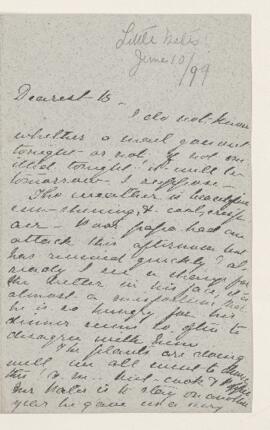 Little Bel's
June 10/99
Dearest B -
I do not know
whether a mail goes out
tonight or not. If not on
it tonight it will be
tomorrow - I suppose -
The weather is beautiful
sun-shining & cool, crisp
air - Poor papa had an
attack this afternoon but
has revived quickly & al-
ready I see a change for
the better in his face, is
almost a
he is so hungry for his
dinner seems to often to
disagree with him
The plants are doing
well in all
this a.m. cook &
Mr. Slater is to stay on another
year he gave me very